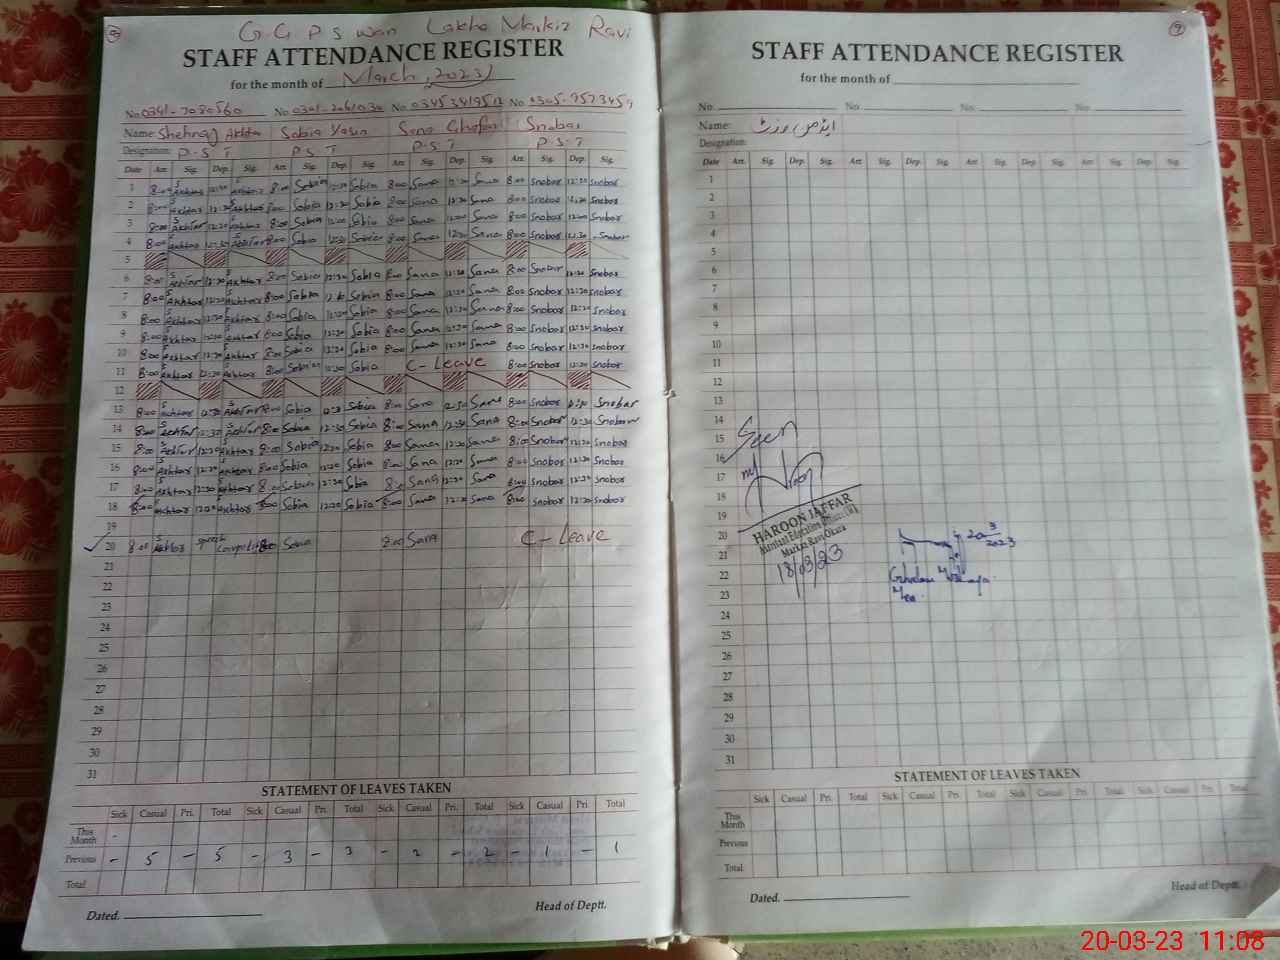 G.G P S wan Lakha Markiz Ravi
STAFF ATTENDANCE REGISTER
for the month of March, 2023
No 0341-7080560 No No 03453419512 No 0305-9573459
Name: Shehnaj Akhtar Sobia Yasin Sana Ghafar Snobar
Designation: P.S T P.S T P.S T P.S T
Date Arr. Sig. Dep. Sig. Arr. Sig. Dep. Sig. Arr. Sig. Dep. Sig. Arr. Sig. Dep. Sig.
1 8:00 S Akhtar 12:30 S Akhtar 8:00 Sobia 12:30 Sobia 8:00 Sana 12:30 Sana 8:00 Snobar 12:30 Snobar
2 8:00 S Akhtar 12:30 S Akhtar 8:00 Sobia 12:30 Sobia 8:00 Sana 12:30 Sana 8:00 Snobar 12:30 Snobar
3 8:00 S Akhtar 12:00 S Akhtar 8:00 Sobia 12:00 Sobia 8:00 Sana 12:00 Sana 8:00 Snobar 12:00 Snobar
4 8:00 S Akhtar 12:30 S Akhtar 8:00 Sobia 12:30 Sobia 8:00 Sana 12:30 Sana 8:00 Snobar 12:30 Snobar
5
6 8:00 S Akhtar 12:30 S Akhtar 8:00 Sobia 12:30 Sobia 8:00 Sana 12:30 Sana 8:00 Snobar 12:30 Snobar
7 8:00 S Akhtar 12:30 S Akhtar 8:00 Sobia 12:30 Sobia 8:00 Sana 12:30 Sana 8:00 Snobar 12:30 Snobar
8 8:00 S Akhtar 12:30 S Akhtar 8:00 Sobia 12:30 Sobia 8:00 Sana 12:30 Sana 8:00 Snobar 12:30 Snobar
9 8:00 S Akhtar 12:30 S Akhtar 8:00 Sobia 12:30 Sobia 8:00 Sana 12:30 Sana 8:00 Snobar 12:30 Snobar
10 8:00 S Akhtar 12:30 S Akhtar 8:00 Sobia 12:30 Sobia 8:00 Sana 12:30 Sana 8:00 Snobar 12:30 Snobar
11 8:00 S Akhtar 12:30 S Akhtar 8:00 Sobia 12:30 Sobia C-Leave 8:00 Snobar 12:30 Snobar
12
13 8:00 S Akhtar 12:30 S Akhtar 8:00 Sobia 12:30 Sobia 8:00 Sana 12:30 Sana 8:00 Snobar 12:30 Snobar
14 8:00 S Akhtar 12:30 S Akhtar 8:00 Sobia 12:30 Sobia 8:00 Sana 12:30 Sana 8:00 Snobar 12:30 Snobar
15 8:00 S Akhtar 12:30 S Akhtar 8:00 Sobia 12:30 Sobia 8:00 Sana 12:30 Sana 8:00 Snobar 12:30 Snobar
16 8:00 S Akhtar 12:30 S Akhtar 8:00 Sobia 12:30 Sobia 8:00 Sana 12:30 Sana 8:00 Snobar 12:30 Snobar
17 8:00 S Akhtar 12:30 S Akhtar 8:00 Sobia 12:30 Sobia 8:00 Sana 12:30 Sana 8:00 Snobar 12:30 Snobar
18 8:00 S Akhtar 12:30 S Akhtar 8:00 Sobia 12:30 Sobia 8:00 Sana 12:30 Sana 8:00 Snobar 12:30 Snobar
19
20 8:00 S Akhtar 8:00 Sobia 8:00 Sana C-Leave
21
22
23
24
25
26
27
28
29
30
31
STATEMENT OF LEAVES TAKEN
Sick Casual Pri. Total Sick Casual Pri. Total Sick Casual Pri. Total Sick Casual Pri. Total
This Month -
Previous - 5 - 5 - 3 - 3 - 2 - 2 - 1 - 1
Total
Dated. Head of Deptt.
9
STAFF ATTENDANCE REGISTER
for the month of
No. No. No. No.
Name:
Designation:
Date Arr. Sig. Dep. Sig. Arr. Sig. Dep. Sig. Arr. Sig. Dep. Sig. Arr. Sig. Dep. Sig.
1
2
3
4
5
6
7
8
9
10
11
12
13
14
15
16
17
18
19
20
21
22
23
24
25
26
27
28
29
30
31
Seen
HAROON JAFFAR
Markaz Ravi Okara
18/03/23
20/3/2023
STATEMENT OF LEAVES TAKEN
Sick Casual Pri. Total Sick Casual Pri. Total Sick Casual Pri. Total Sick Casual Pri. Total
This Month
Previous
Total
Dated. Head of Deptt.
20-03-23 11:08